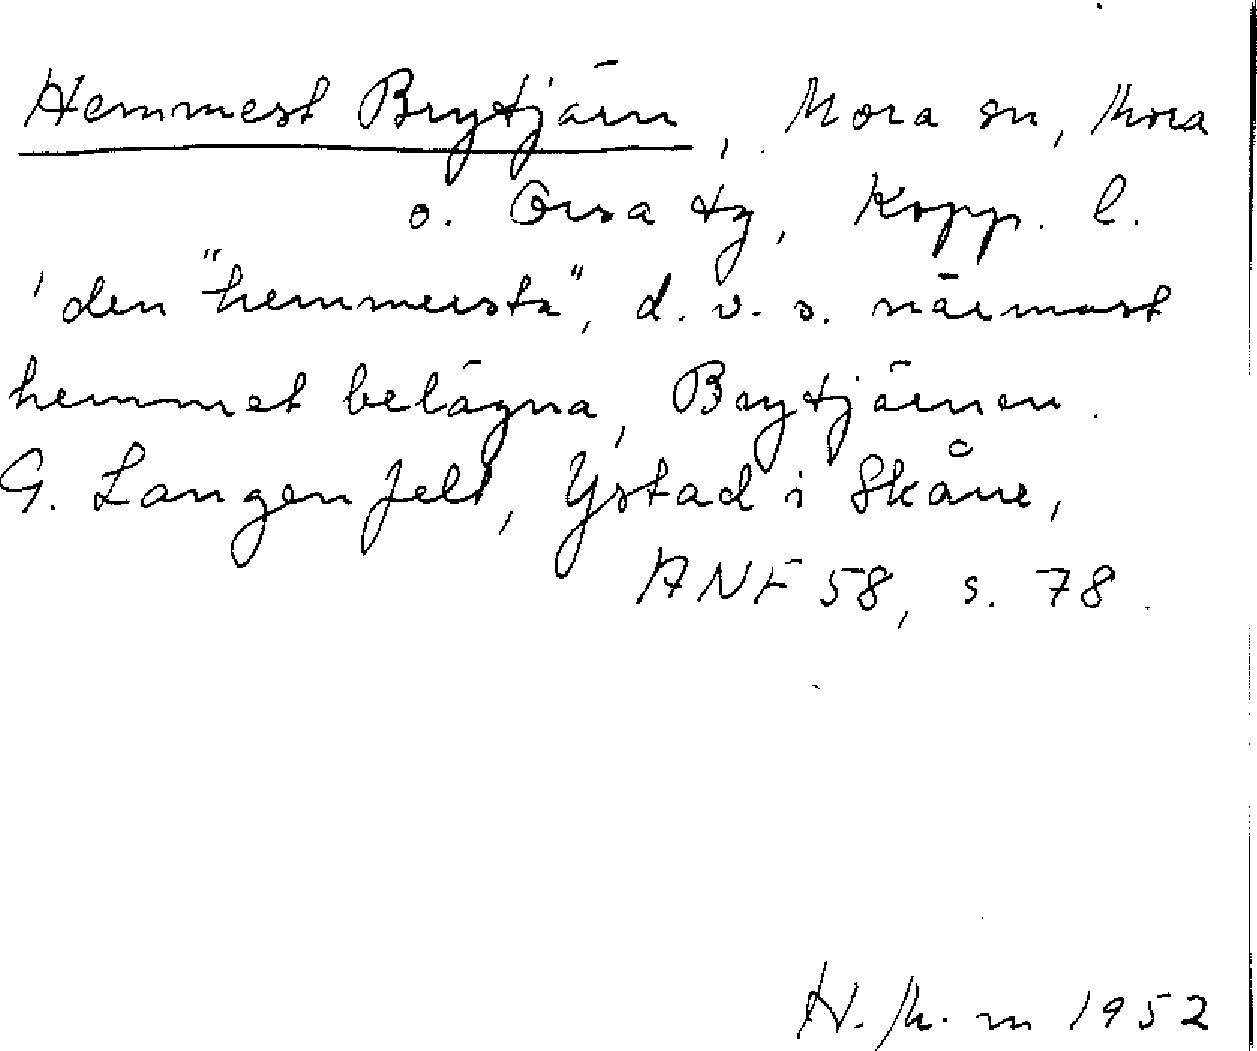 Hemmest Brytjärn, Mora sn, Mora
o. Orsa tg, Kopp. l.
'den "hemmersta", d. v. s. närmast
hemmet belägna, Brytjärnen.
G. Langenfelt, Ystad i Skåne,
ANF 58, s. 78.
1952